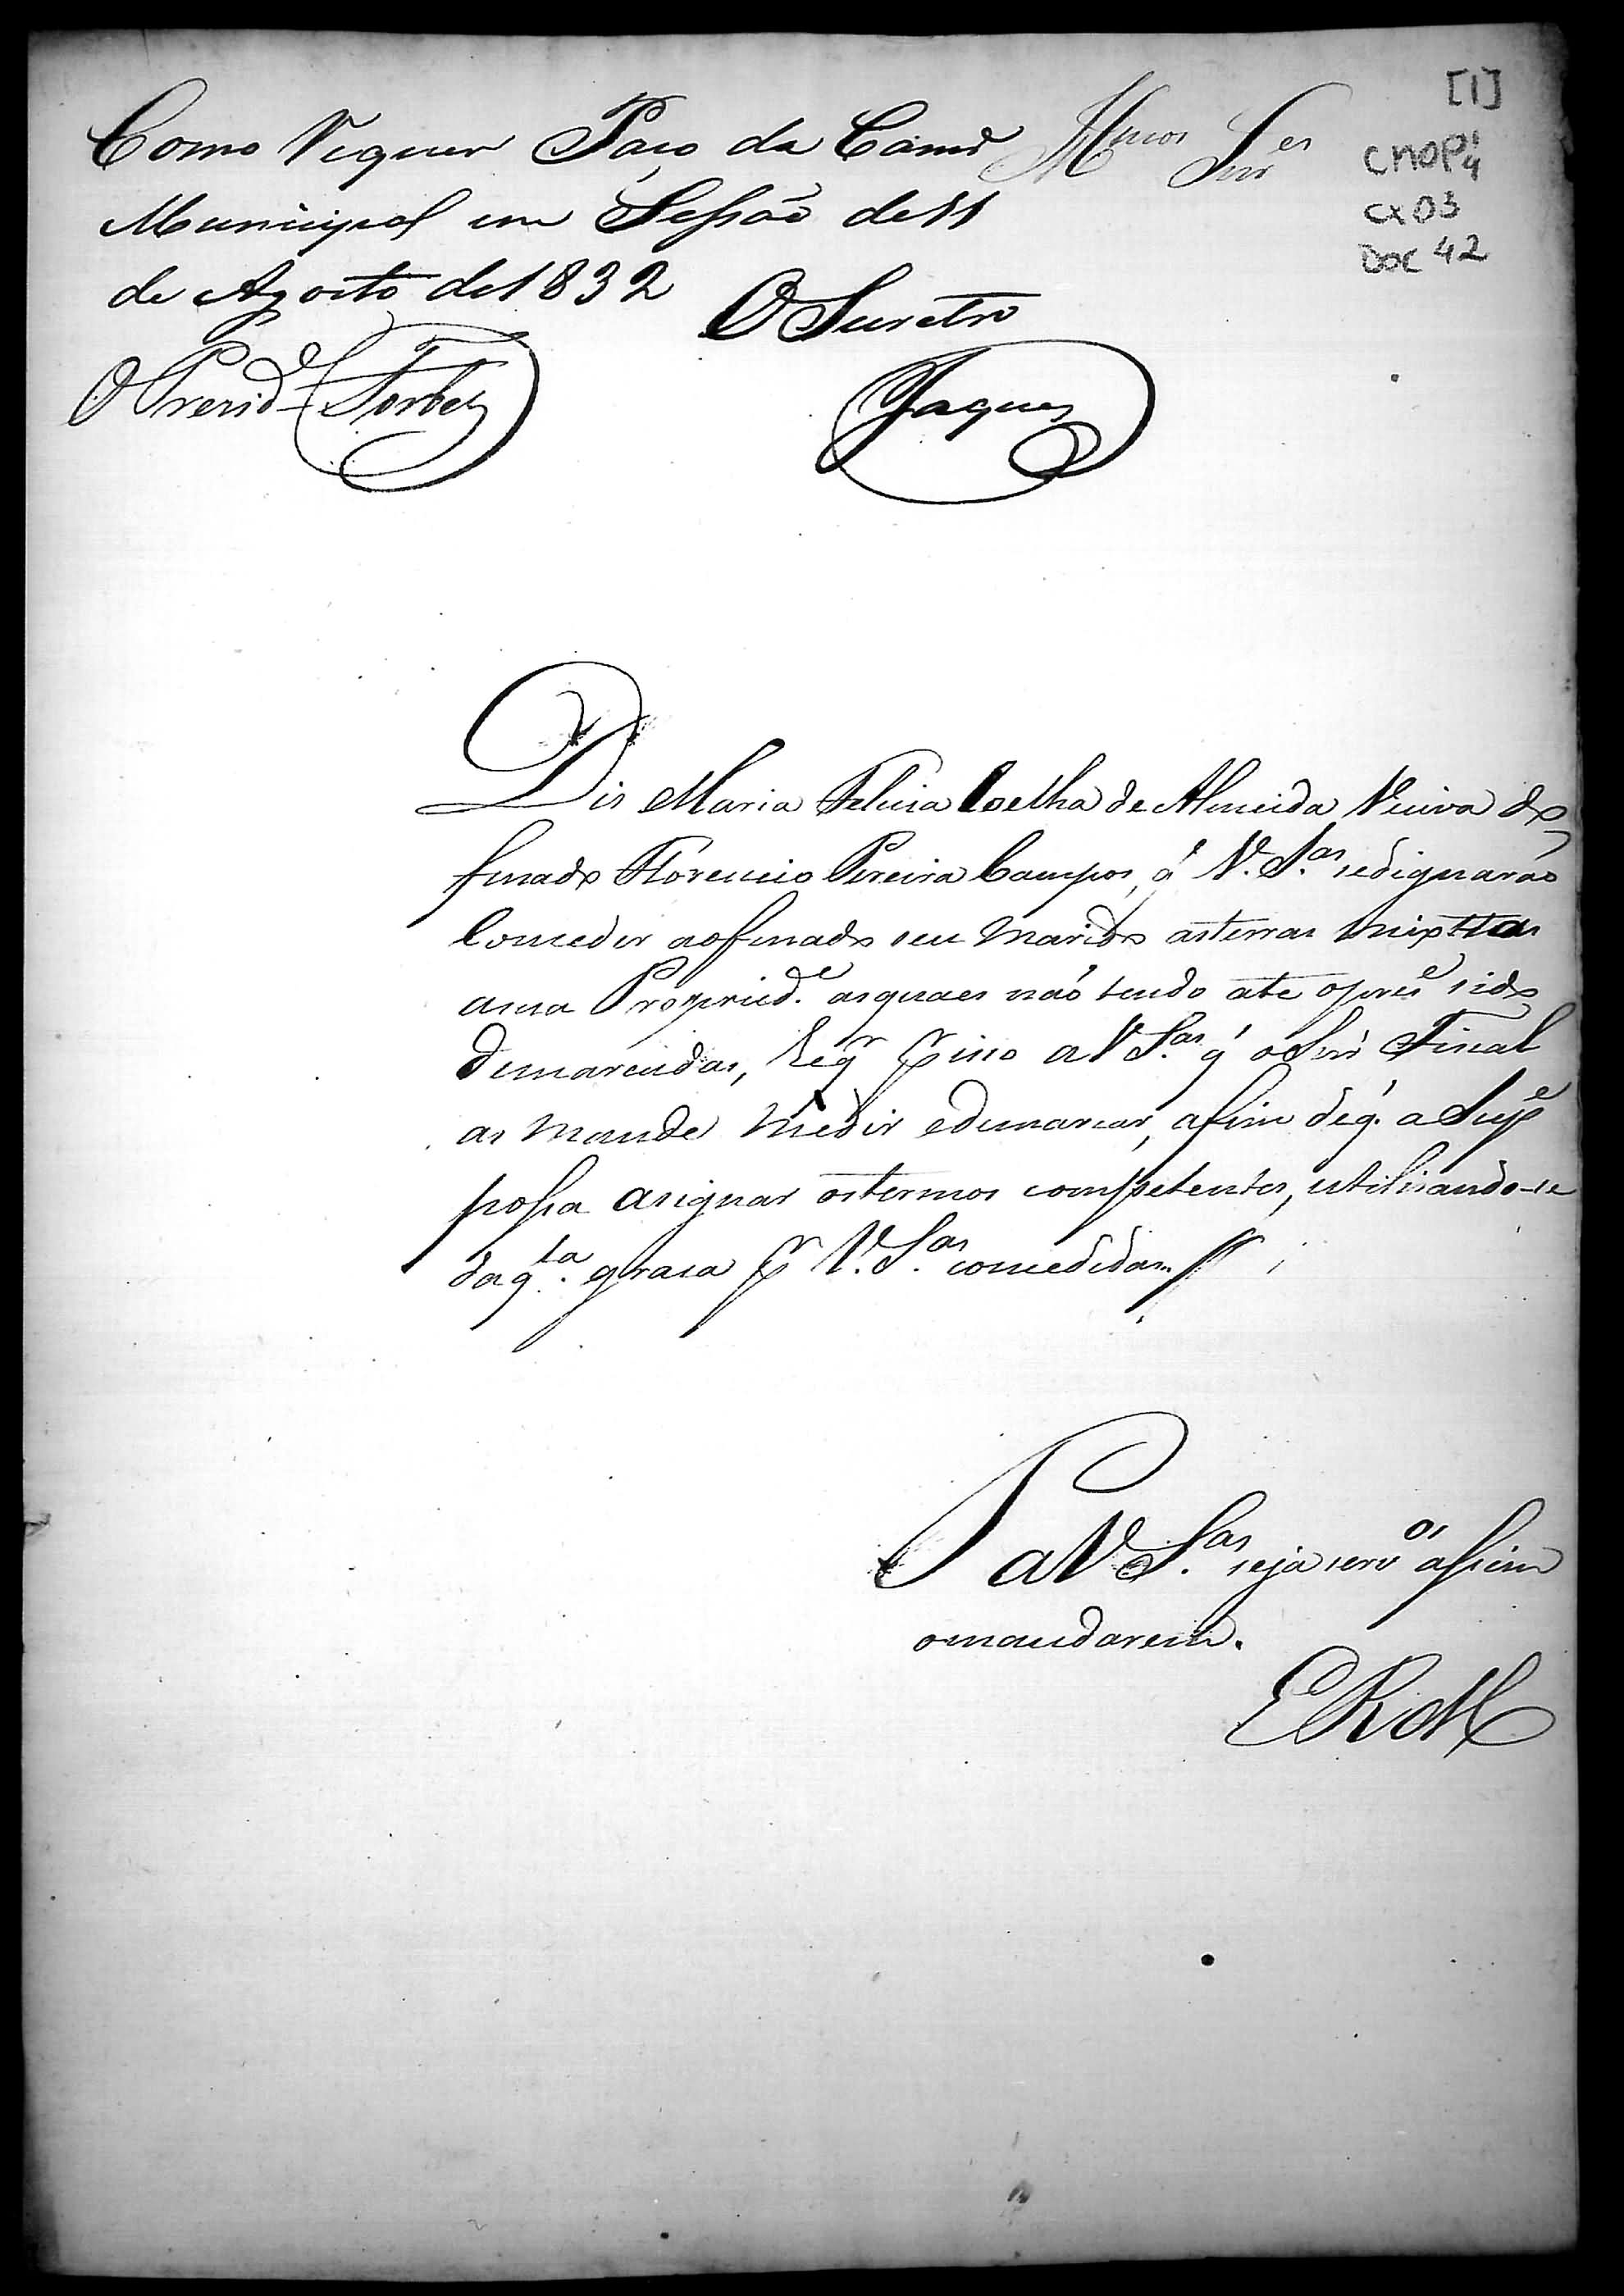 [1]
CMOP¹4
CX 03
DOC 42
Illmos Snres
Como Requer Paço da Camrª
Municipal em Sessão de 11
de Agosto de 1832
O Secretro
O Prezid.e Forbes
Jaques
Dis Maria Felicia Coelha de Almeida Viuva do
finado Florencio Pereira Campos, q' V. S.as se dignarão
Conceder ao finado seu Marido as terras mixtas
a sua Propried.e as quaes não tendo ate o pres.e sido
demarcadas, Req.r pr isso a V S.as q' o Snr Fiscal
as mande medir e demarcar, afim de q' a Sup.e
possa asignar os termos competentes, utilisando-se
daq.ta graca pr V. S.as concedidas
P a V S.as seja servos assim
o mandarem.
E R M